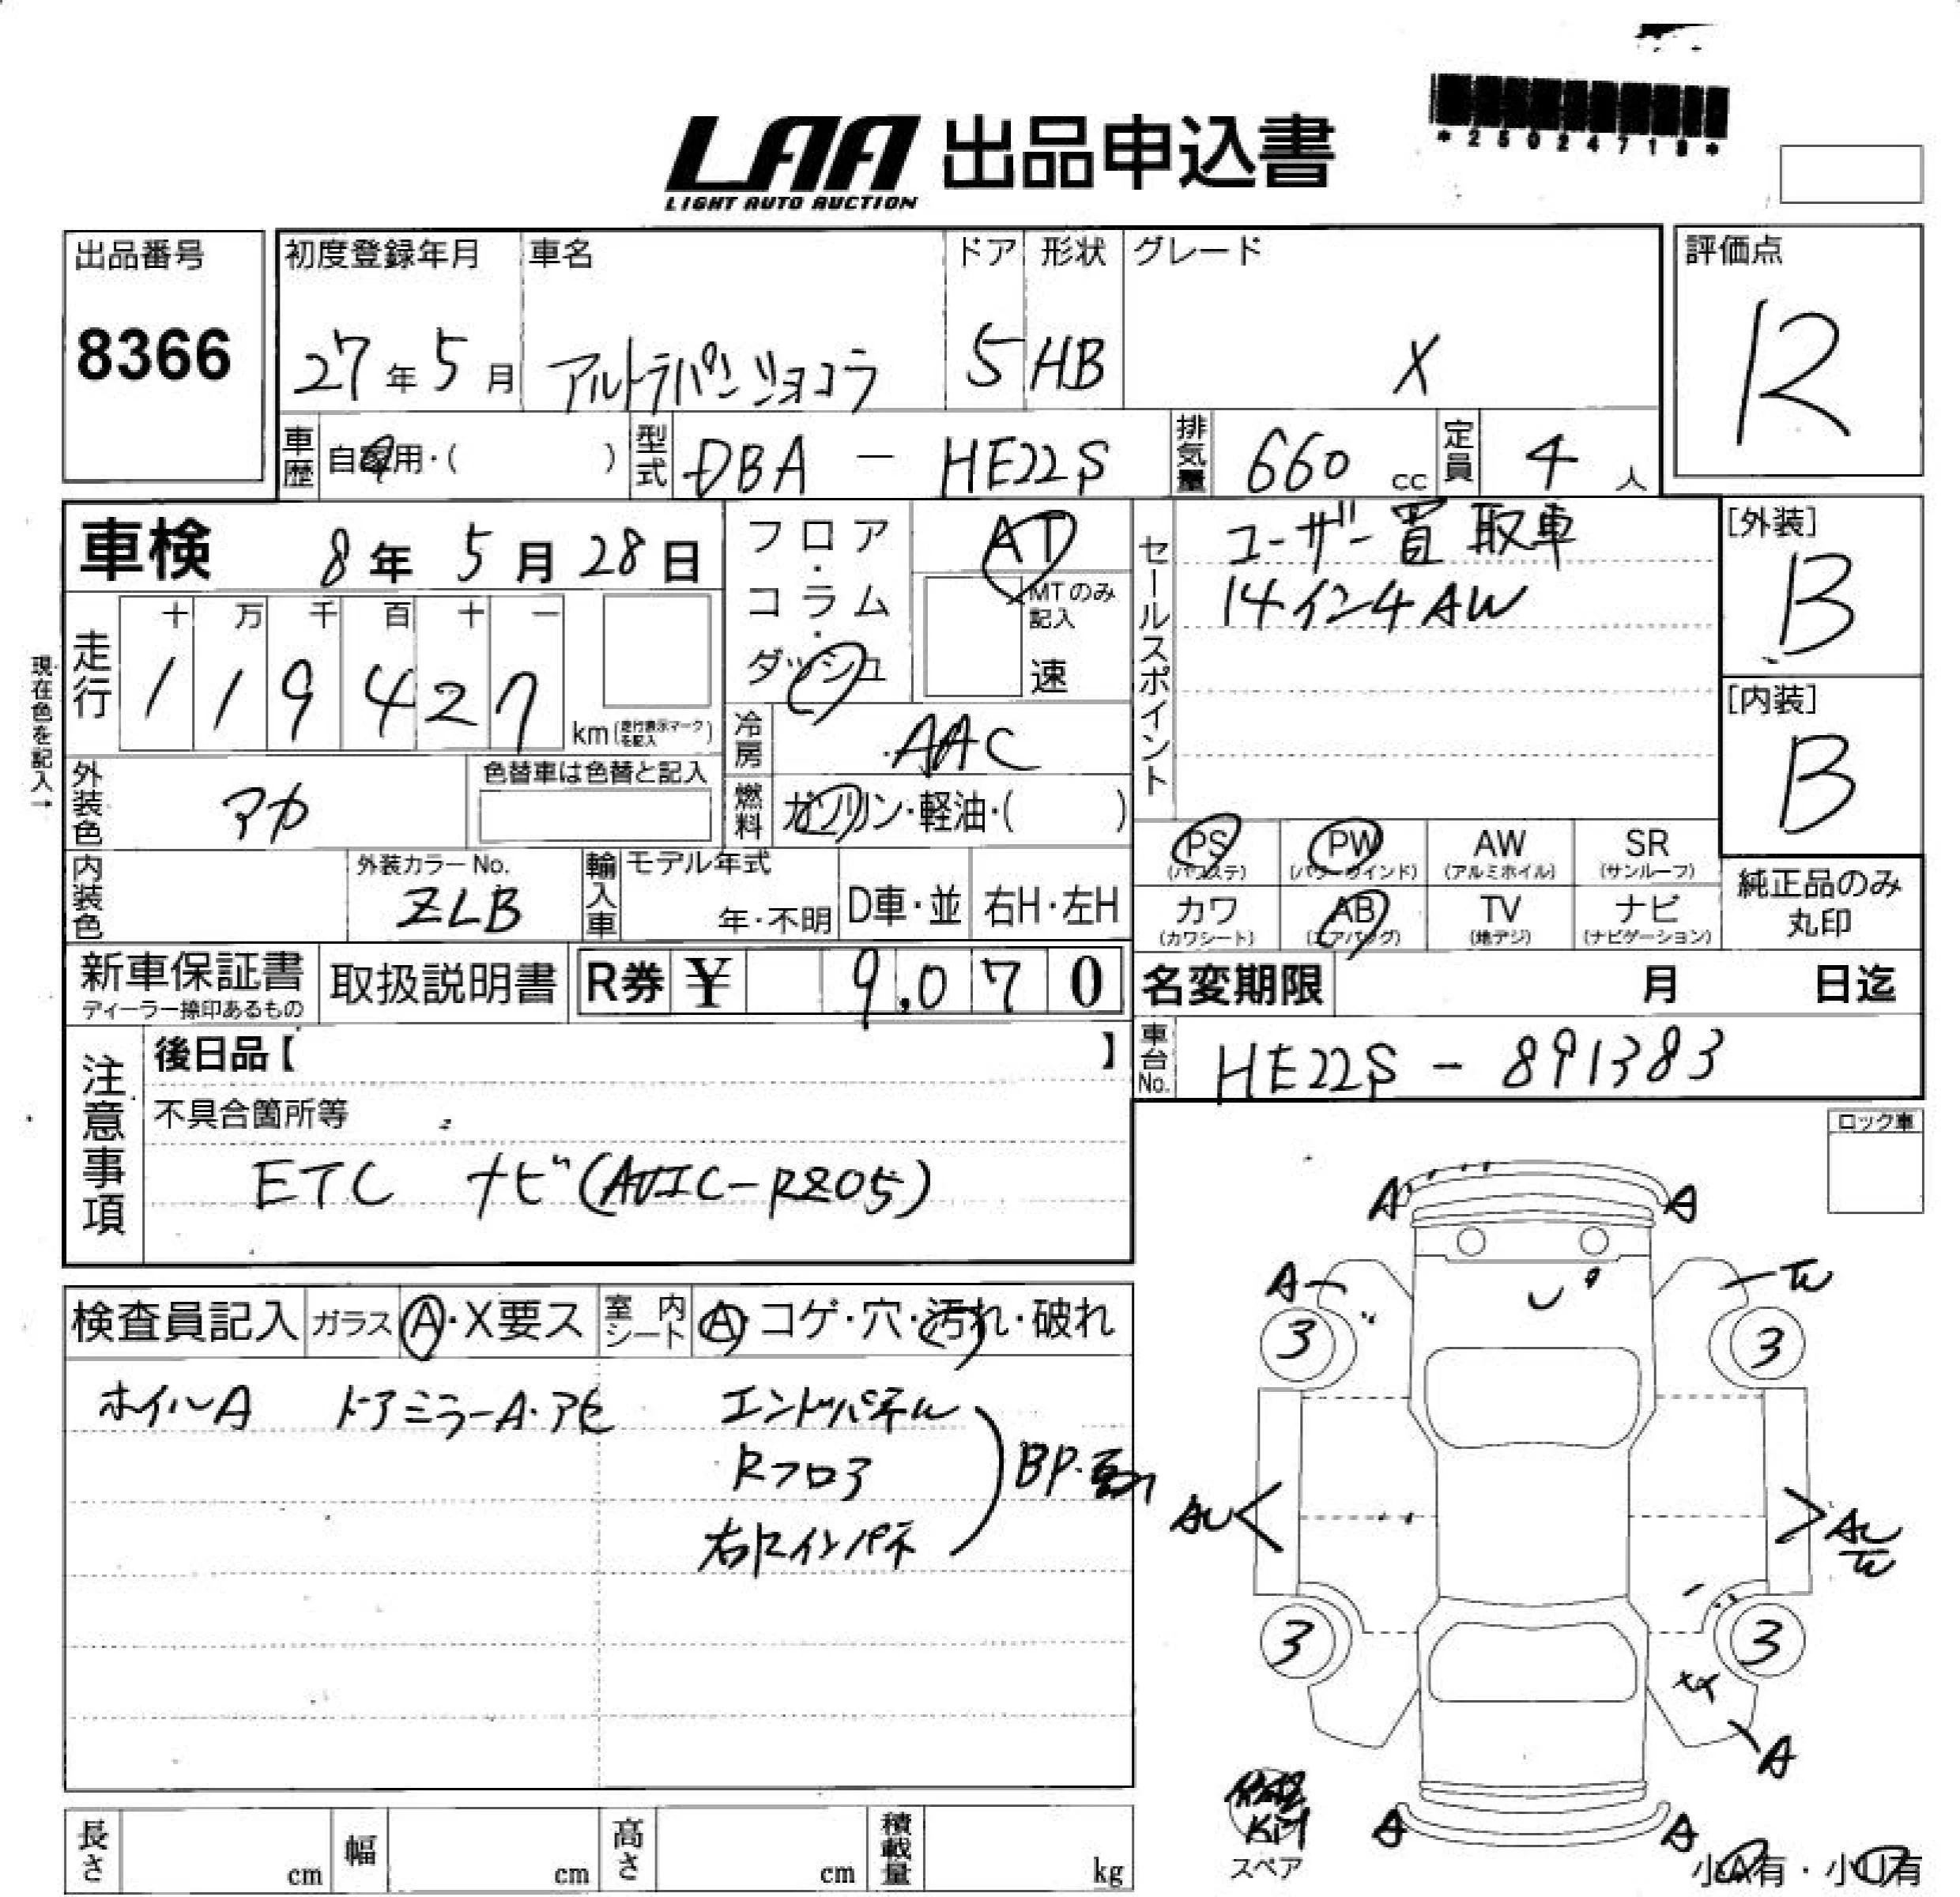 *25024718*
LAA 出品申込書
LIGHT AUTO AUCTION
出品番号 8366
初度登録年月 27年5月
車名 アルトラパンショコラ
ドア 5
形状 HB
グレード X
評価点 R
車歴 自家用・( )
型式 DBA - HE22S
排気量 660 cc
定員 4 人
車検 8年5月28日
フロア・コラム・ダッシュ
AT
MTのみ記入
速
セールスポイント
ユーザー買取車
14インチAW
[外装] B
[内装] B
現在色を記入→
走行 十 万 千 百 十 一
1 1 9 4 2 7 km (走行表示マークを記入)
冷房 AAC
外装色 アカ
色替車は色替と記入
燃料 ガソリン・軽油・( )
内装色
外装カラーNo. ZLB
輸入車 モデル年式 年・不明 D車・並 右H・左H
PS (パワステ) PW (パワーウインド) AW (アルミホイル) SR (サンルーフ)
カワ (カワシート) AB (エアバッグ) TV (地デジ) ナビ (ナビゲーション)
純正品のみ丸印
新車保証書 ディーラー捺印あるもの
取扱説明書
R券 ¥ 9,070
名変期限 月 日迄
車台No. HE22S - 891383
注意事項
後日品【 】
不具合箇所等
ETC ナビ(AVIC-RZ05)
ロック車
検査員記入 ガラス A・X要ス 室内シート A・コゲ・穴・汚れ・破れ
ホイルA ドアミラーA・アセ エンドパネル
Rフロア BP.
右Rインパネ
A A
A
3 3
AU
3 3
A
A A
スペア
小A有・小U有
長さ cm 幅 cm 高さ cm 積載量 kg